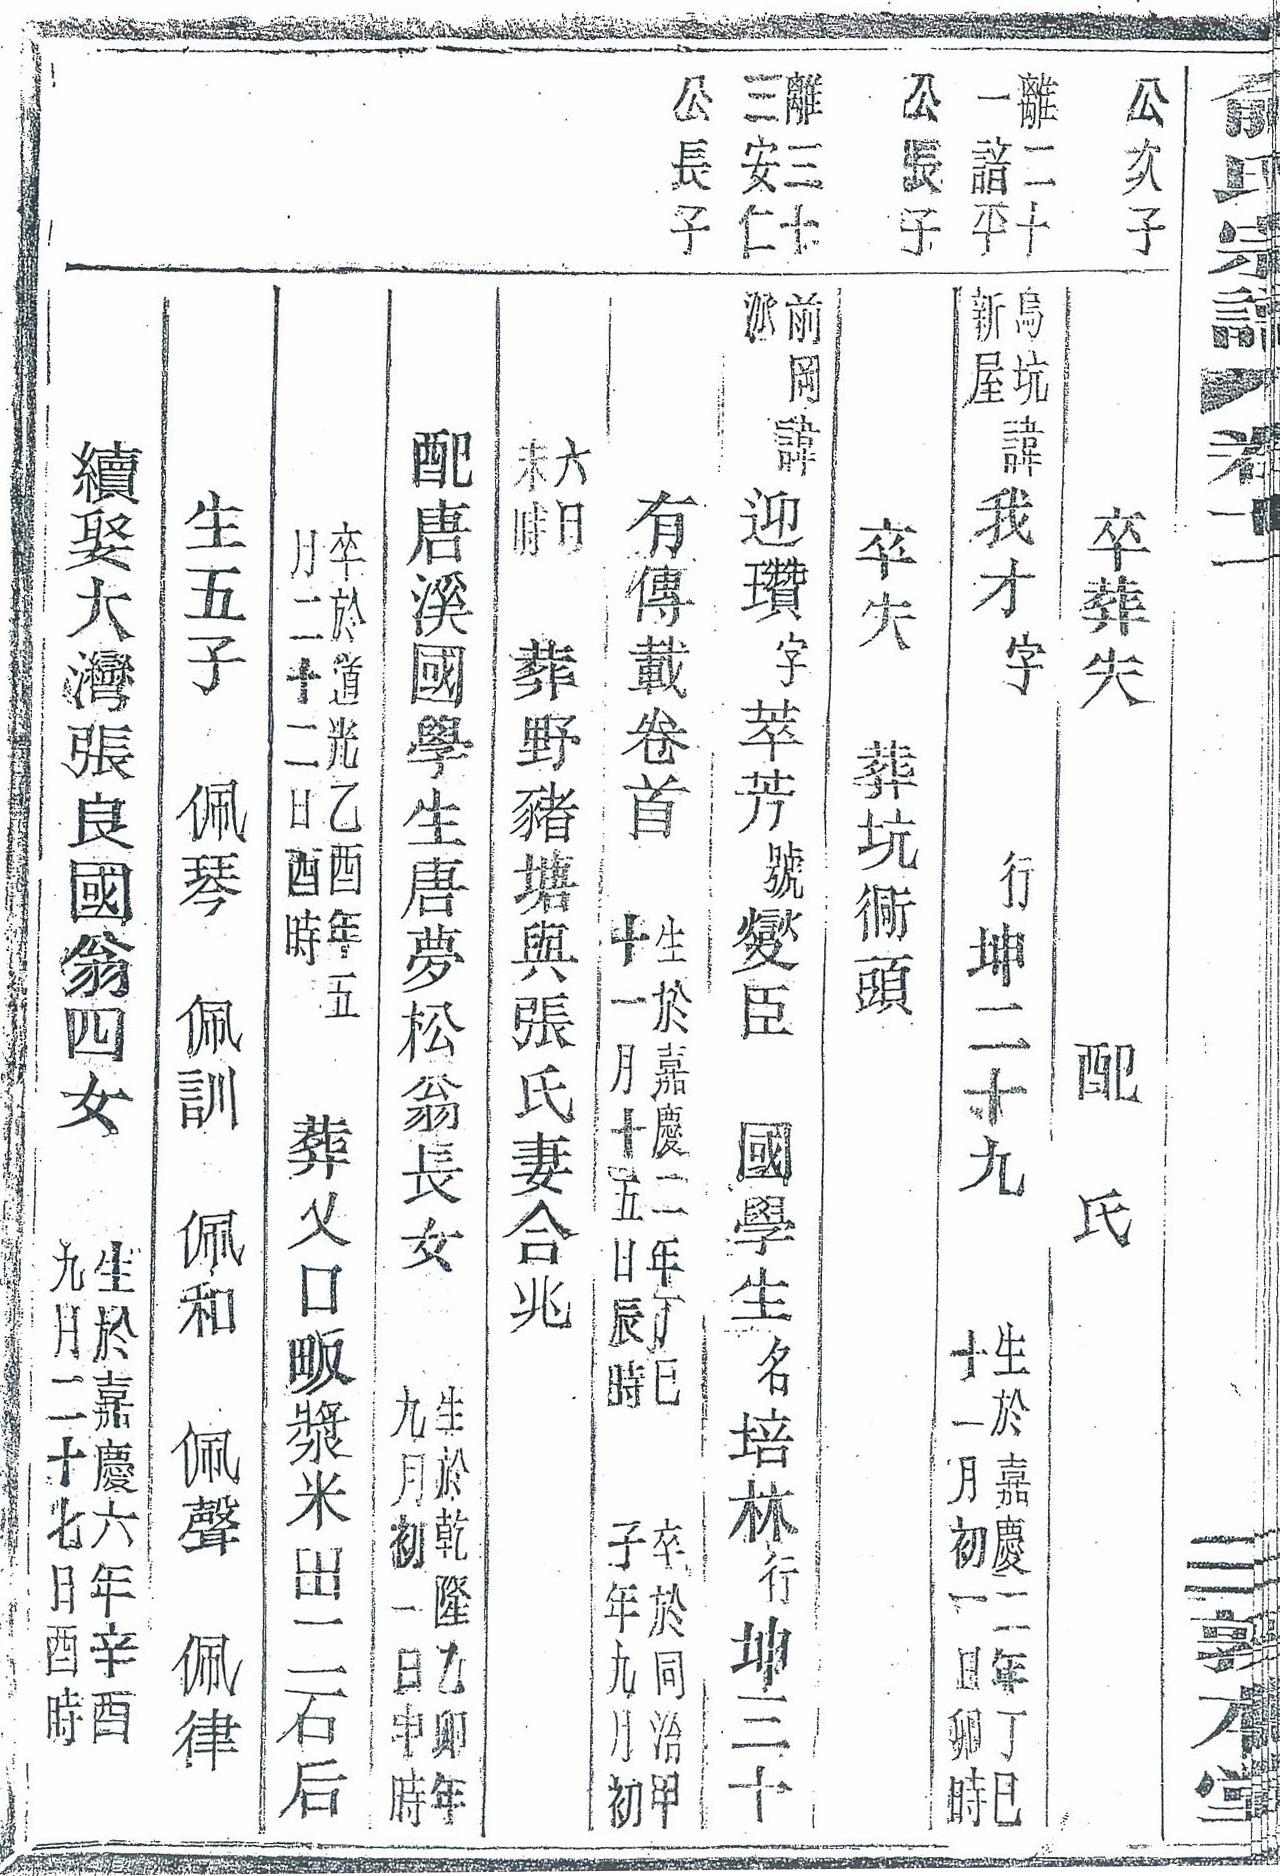 俞氏宗譜 卷十一 三 敦本堂
公次子
卒葬失 配 氏
離二十
一諳平
烏坑
新屋
諱我才字 行坤二十九
生於嘉慶二年丁巳
十一月初一日卯時
公長子
卒失 葬坑衕頭
離三十
三安仁
前岡
派
諱迎瓚字萃芳號燮臣 國學生名培林行坤三十
公長子
有傳載卷首
生於嘉慶二年丁巳
十一月十五日辰時
卒於同治甲
子年九月初
六日
未時
葬野豬塘與張氏妻合兆
配唐溪國學生唐夢松翁長女
生於乾隆乙卯年
九月初一日申時
卒於道光乙酉年五
月二十二日酉時
葬父口畈漿米出一二石后
生五子 佩琴 佩訓 佩和 佩聲 佩律
續娶大灣張良國翁四女
生於嘉慶六年辛酉
九月二十七日酉時